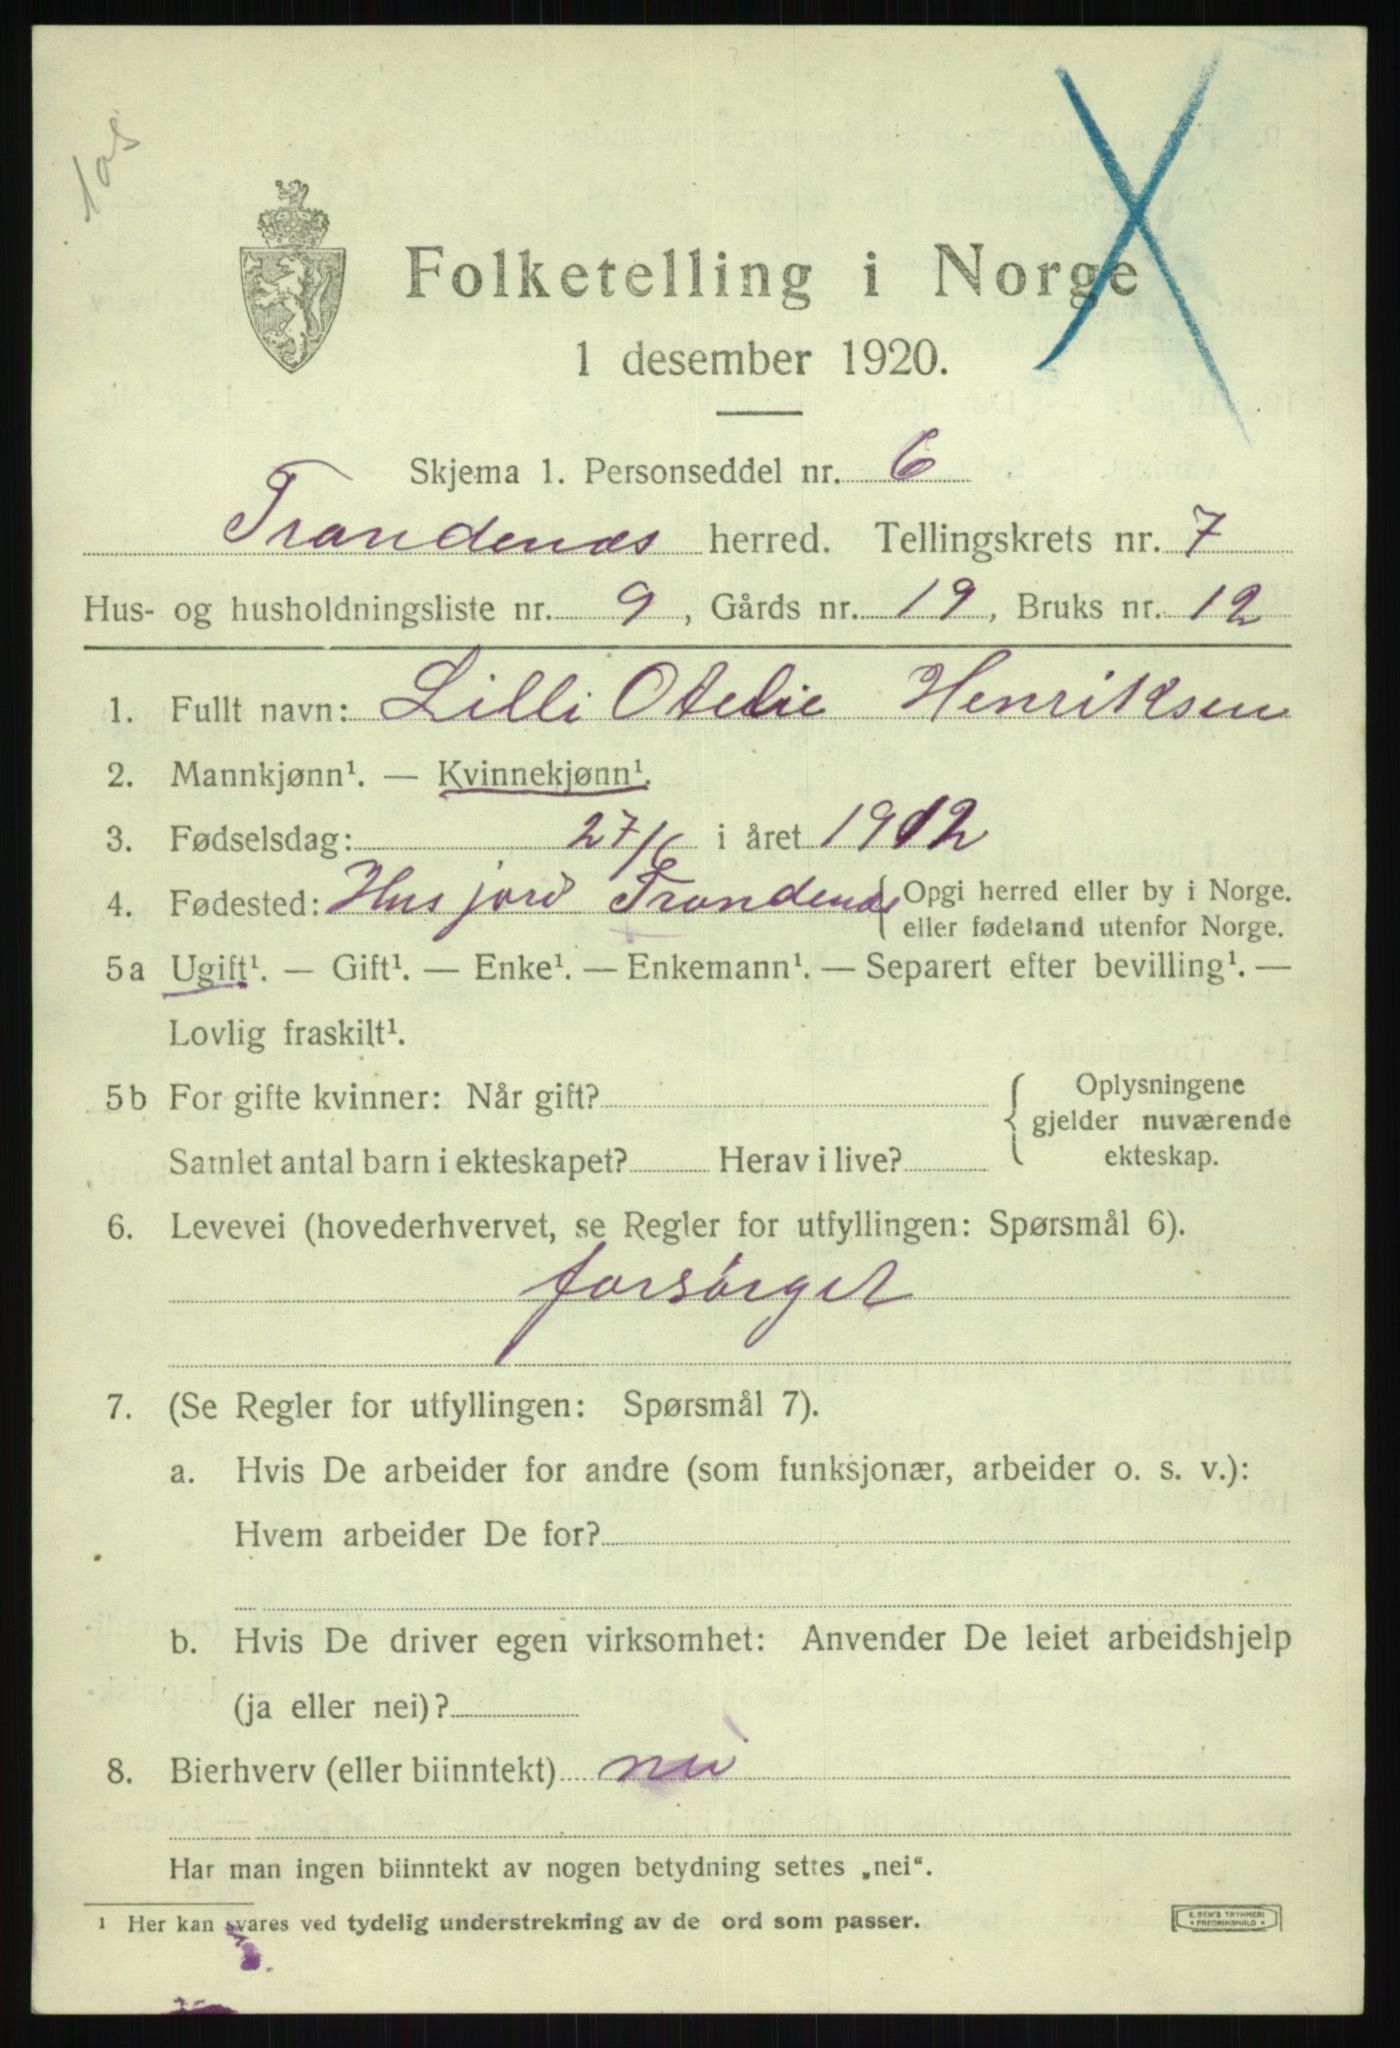 Folketelling i Norge
1 desember 1920.
Skjema 1. Personseddel nr. 6
Trondenæs herred. Tellingskrets nr. 7
Hus- og husholdningsliste nr. 9, Gårds nr. 19, Bruks nr. 12
1. Fullt navn: Lilli Otelie Henriksen
2. Mannkjønn¹. — Kvinnekjønn¹.
3. Fødselsdag: 27/6 i året 1912
4. Fødested: Husjord Trondenæs { Opgi herred eller by i Norge.
eller fødeland utenfor Norge.
5a Ugift¹. — Gift¹. — Enke¹. — Enkemann¹. — Separert efter bevilling¹. —
Lovlig fraskilt¹.
5b For gifte kvinner: Når gift? { Oplysningene
gjelder nuværende
Samlet antal barn i ekteskapet? Herav i live? ekteskap.
6. Levevei (hovederhvervet, se Regler for utfyllingen: Spørsmål 6).
forsørget
7. (Se Regler for utfyllingen: Spørsmål 7).
a. Hvis De arbeider for andre (som funksjonær, arbeider o. s. v.):
Hvem arbeider De for?
b. Hvis De driver egen virksomhet: Anvender De leiet arbeidshjelp
(ja eller nei)?
8. Bierhverv (eller biinntekt) nei
Har man ingen biinntekt av nogen betydning settes „nei“.
¹ Her kan svares ved tydelig understrekning av de ord som passer.
E. SEM'S TRYKKERI
FREDRIKSHALD